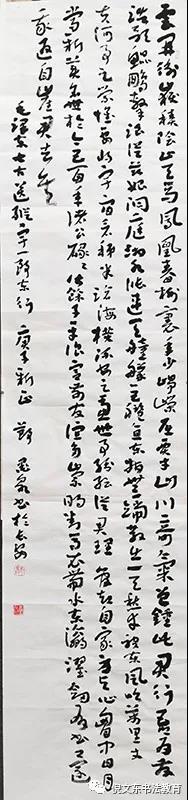 雲开衡岳積陰止天马鳳凰春樹里年少崢嶸屈賈才山川奇氣曾鐘此君行吾为发
浩歌鲲鹏擊浪從兹始洞庭湘水涨連天艟艨巨艦直东指無端散出一天愁幸被东風吹萬里丈
夫何事足萦懷要将宇宙看稊米沧海横流安足慮世事纷纭從君理管却自家身与心胸中日月
常新美名世於今五百年诸公碌碌皆餘子平浪宫前友谊多崇明对马衣带水东瀛濯劍有书还
我返自崖君去矣
毛泽东七古送縱宇一郎东行 庚子新正 书於长安
倪文东书法教育